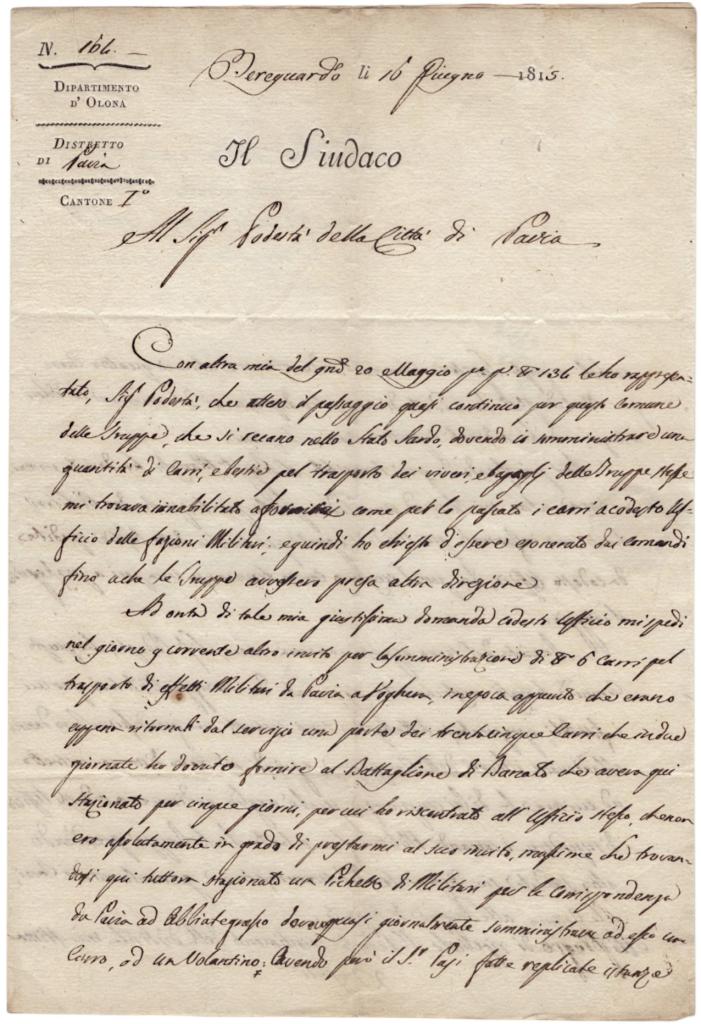 N. 164. —
DIPARTIMENTO
D' OLONA
DISTRETTO
DI Pavia
CANTONE I°
Bereguardo li 16 Giugno — 1815.
Il Sindaco
Al Sigr Podestà della Città di Pavia
Con altra mia del giorno 20 Maggio po po N 136 le ho rappresen-
tato, Sigr Podestà, che atteso il passaggio quasi continuo per questo Comune
delle Truppe, che si recano nello Stato Sardo, dovendo io somministrare una
quantità di Carri, e bestie pel trasporto dei viveri, e bagagli delle Truppe stesse
mi trovava innabilitato a fornire come pel lo passato i carri a codesto Uf-
ficio delle fazioni Militari, e quindi ho chiesto d'essere esonerato dai comandi
fino a che le Truppe avessero presa altra direzione
Ad onta di tale mia giustissima domanda codesto Ufficio mi spedì
nel giorno 9 corrente altro invito per la somministrazione di N 6 Carri pel
trasporto di effetti Militari da Pavia a Voghera, in epoca appunto che erano
appena ritornati dal servizio una parte dei trentacinque Carri che in due
giornate ho dovuto fornire al Battaglione di Banato che aveva qui
stazionato per cinque giorni, per cui ho riscontrato all' Ufficio stesso, che non
ero assolutamente in grado di prestarmi al suo invito, massime che trovan-
dosi qui tuttora stazionato un Pichetto di Militari per la corrispondenza
da Pavia ad Abbiategrasso devo quasi giornalmente somministrare ad esso un
Carro, od un Volantino. Avendo però il Sr Pasi fatte replicate istanze